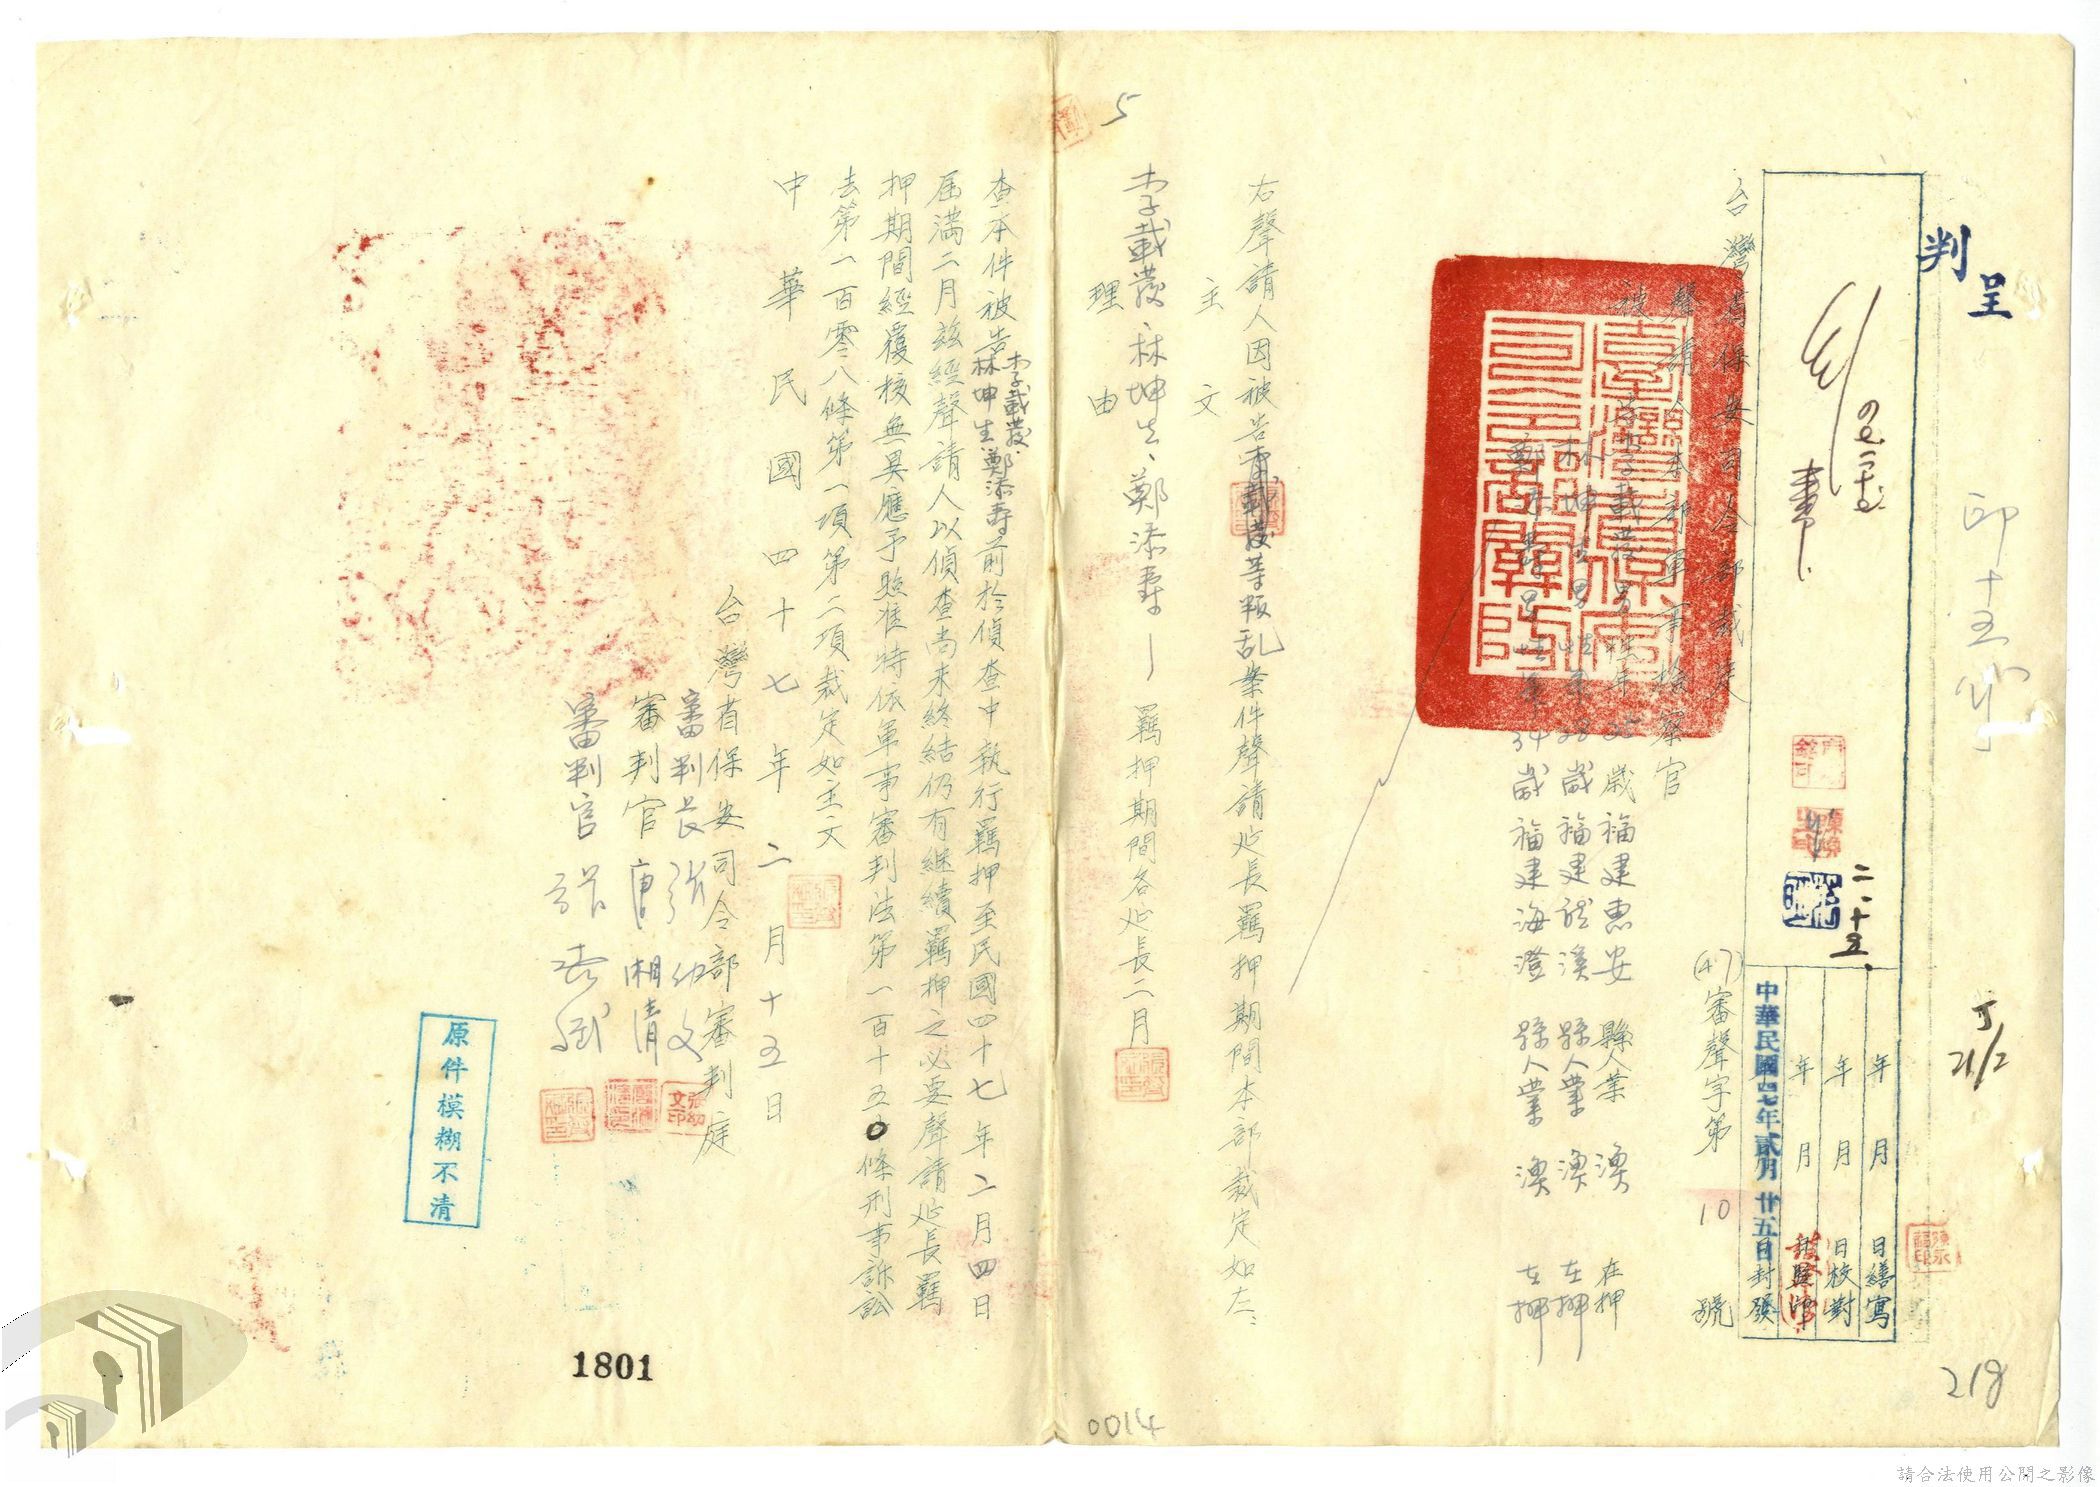 呈
判
印十五份
21/2
218
二.十五.
年 月 日繕寫
年 月 日校對
年 月 日監印
中華民國四七年貳月廿五日封發
台灣省保安司令部裁定
(47)審聲字第 10 號
聲請人本部軍事檢察官
被告李載發男性年35歲福建惠安縣人業漁 在押
林坤生男性年28歲福建龍溪縣人業漁 在押
鄭添壽男性年34歲福建海澄縣人業漁 在押
右聲請人因被告李載發等叛乱案件聲請延長羈押期間本部裁定如左:
主文
李載發、林坤生、鄭添壽羈押期間各延長二月
理由
查本件被告李載發、林坤生、鄭添壽前於偵查中執行羈押至民國四十七年二月四日
屆滿二月茲經聲請人以偵查尚未終結仍有繼續羈押之必要聲請延長羈
押期間經覆核無異應予照准特依軍事審判法第一百十五0條刑事訴訟
法第一百零八條第一項第二項裁定如主文
中華民國四十七年二月十五日
台灣省保安司令部審判庭
審判長 張幼文
審判官 唐湘清
審判官
張幼文印
原件模糊不清
5
1801
0014
請合法使用公開之影像